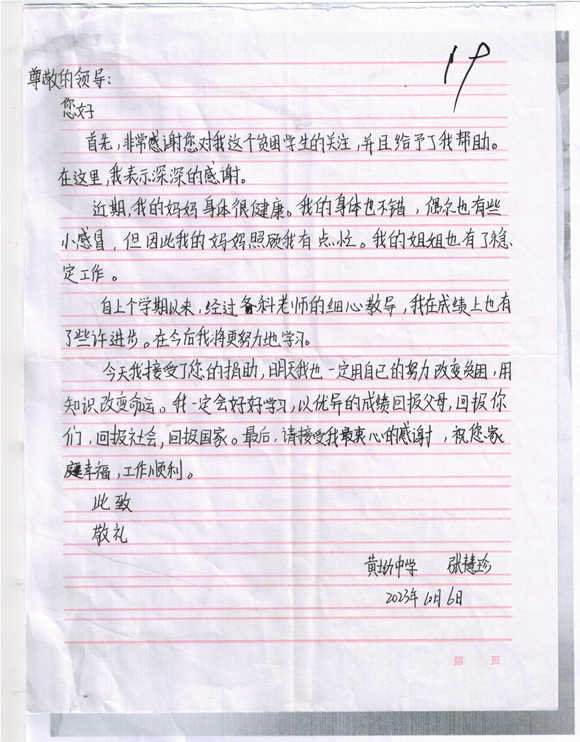 19
尊敬的领导:
您好
首先,非常感谢您对我这个贫困学生的关注,并且给予了我帮助。
在这里,我表示深深的感谢。
近期,我的妈妈身体很健康。我的身体也不错,偶尔也有些
小感冒,但因此我的妈妈照顾我有点忙。我的姐姐也有了稳
定工作。
自上个学期以来,经过各科老师的细心教导,我在成绩上也有
了些许进步。在今后我将更努力地学习。
今天我接受了您的捐助,明天我也一定用自己的努力改变贫困,用
知识改变命运。我一定会好好学习,以优异的成绩回报父母,回报你
们,回报社会,回报国家。最后,请接受我最衷心的感谢,祝您家
庭幸福,工作顺利。
此致
敬礼
黄坳中学 张慧珍
2023年10月6日
第 页